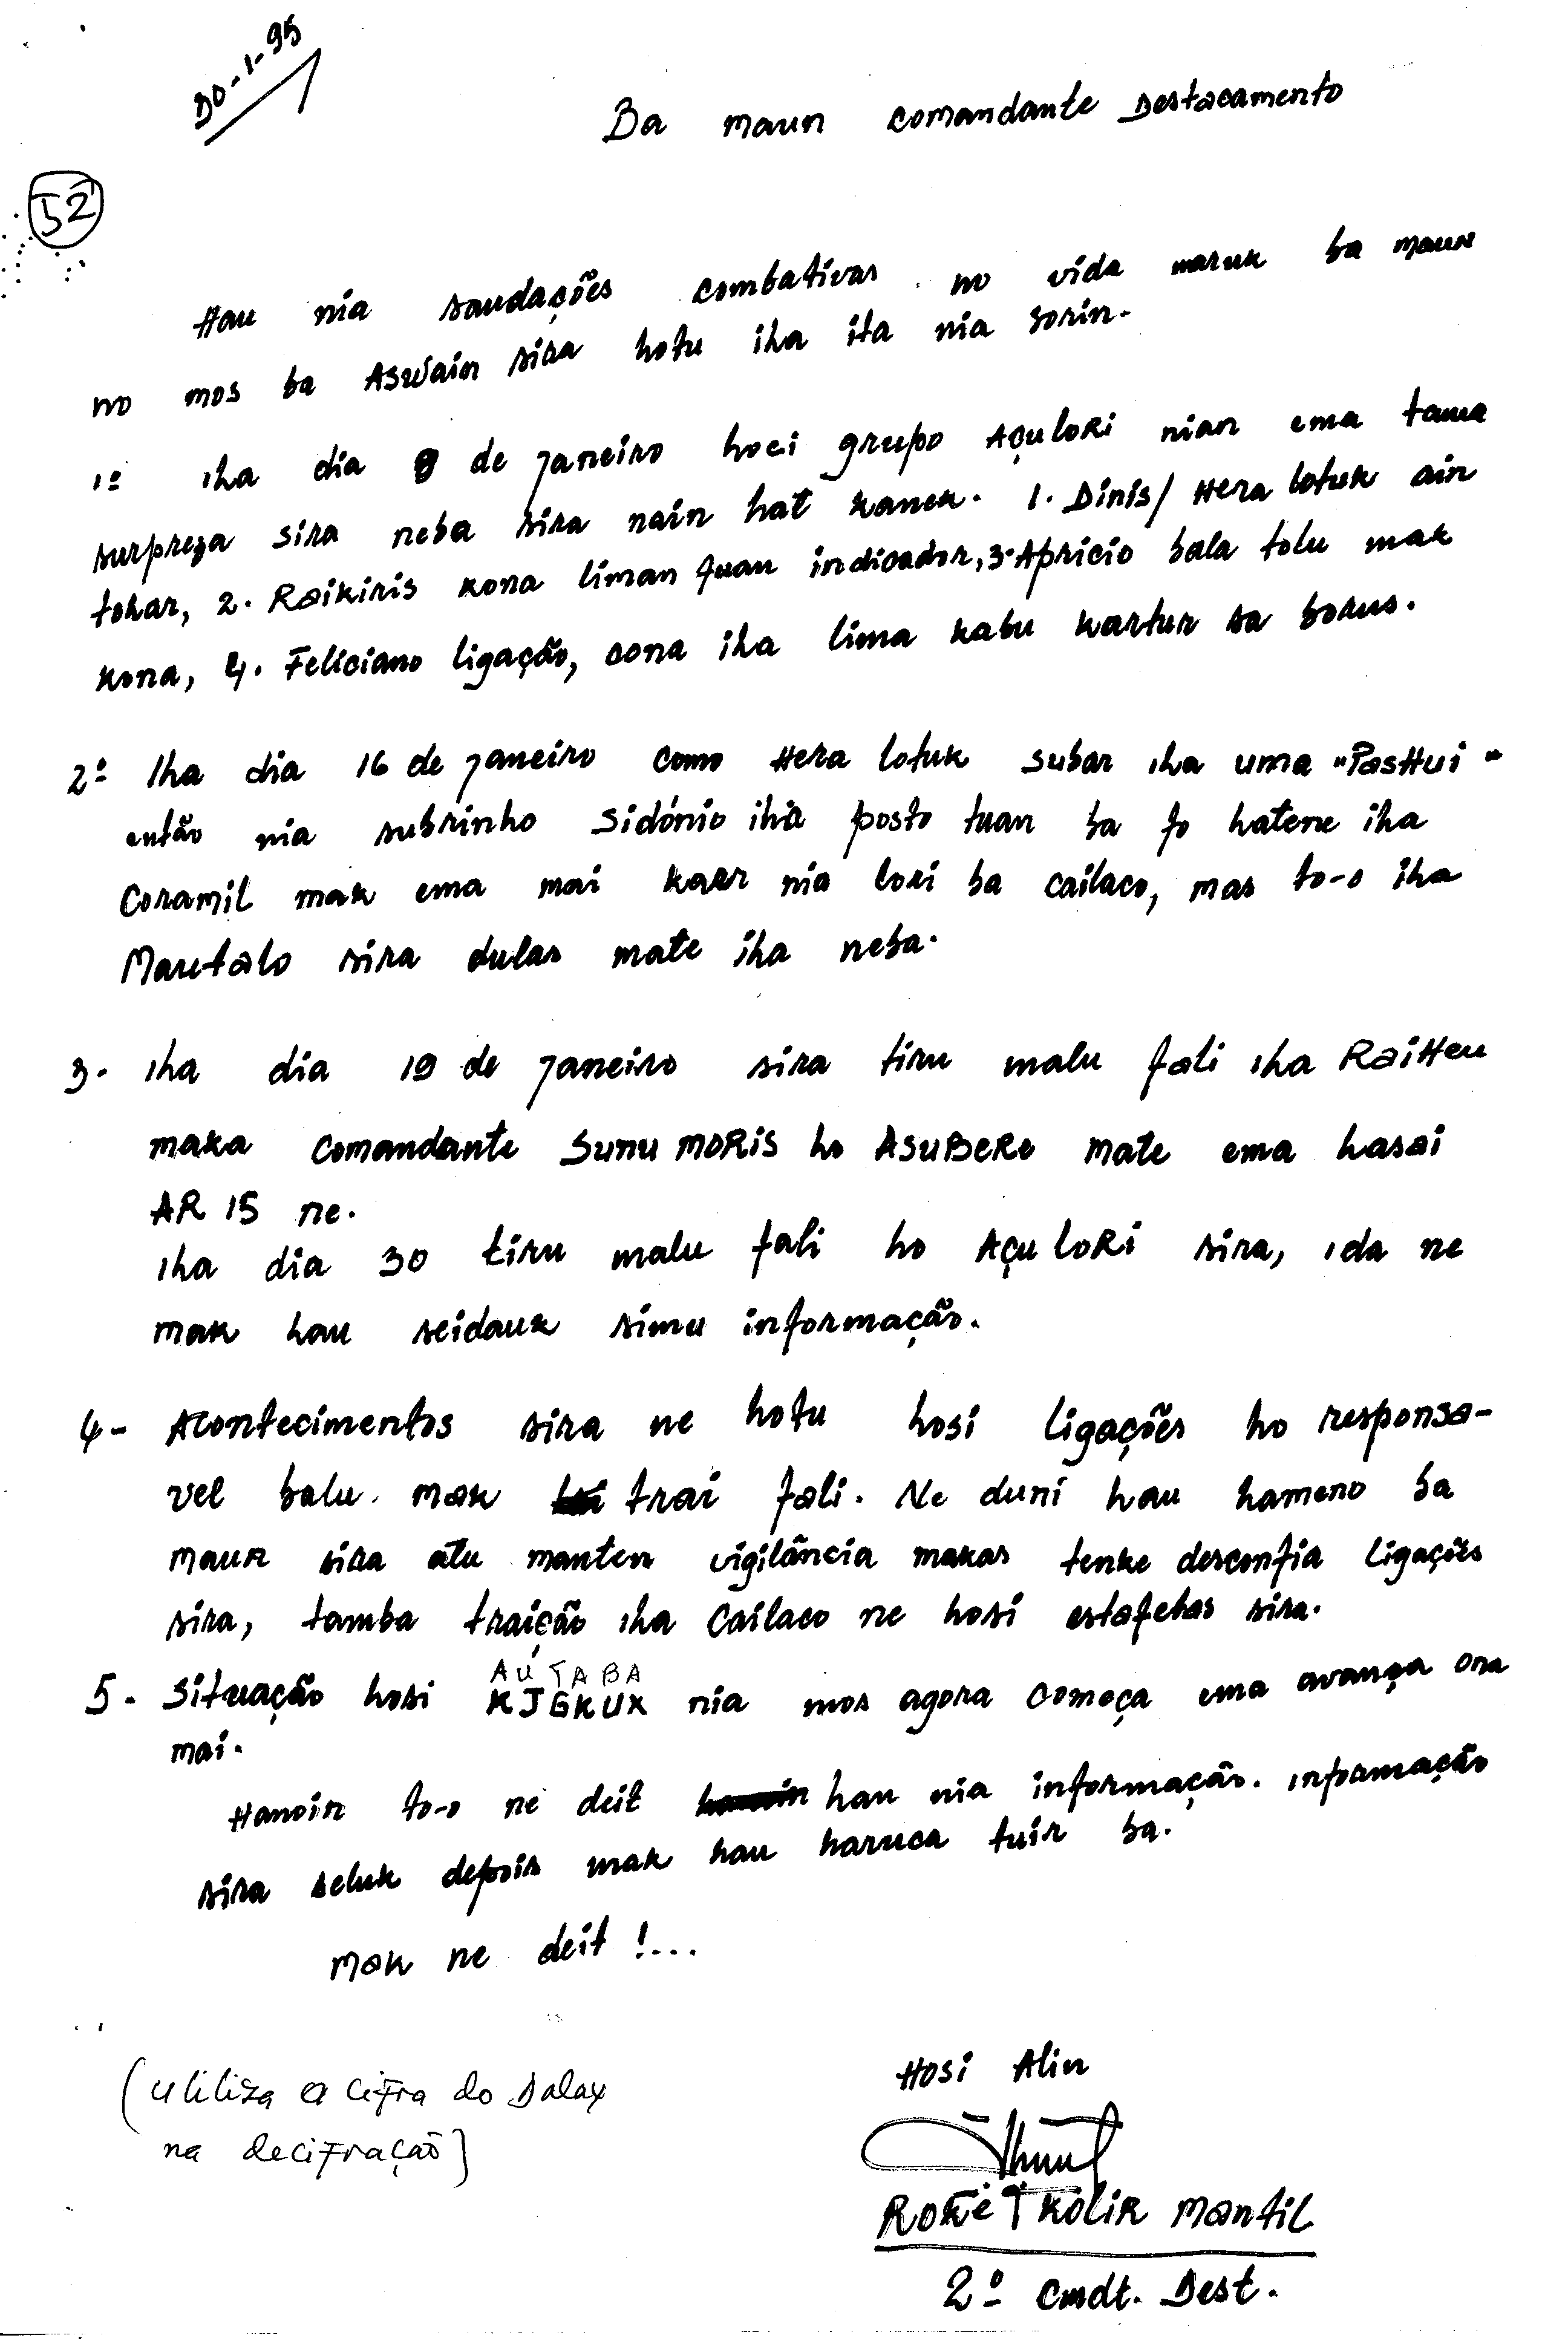 30-1-95
Ba maun comandante Destacamento
52
Hau nia saudações combativas no vida maruk ba maun
no mos ba Aswain sira hotu iha ita nia sorin.
1º iha dia 9 de janeiro hoci grupo Açulori nian ema tama
surpreza sira neba sira nain hat kanek. 1. Dinis/Hera lotuk ain
tohar, 2. Raikiris kona liman fuan indicador, 3. Apricio bala tolu mak
kona, 4. Feliciano ligação, cona iha lima kabu kartur ba borus.
2º Iha dia 16 de janeiro como Hera lotuk subar iha uma "PasHui"
então nia subrinho Sidónio iha posto tuan ba fo hatene iha
Coramil mak ema mai kaer nia lori ba cailaco, mas to-o iha
Marutalo sira dulas mate iha neba.
3. Iha dia 19 de janeiro sira tiru malu fali iha RaiHeu
maka comandante Sunu MORIS ho ASUBERE mate ema hasai
AR 15 ne.
Iha dia 30 tiru malu fali ho AçuLORi sira, ida ne
mak hau seidauk simu informação.
4- Acontecimentos sira ne hotu hosi ligações ho responsa-
vel balu mak trai fali. Ne duni hau hameno ba
maun sira atu manten vigilância makas tenke desconfia ligações
sira, tamba traição iha Cailaco ne hosi estafetas sira.
AÚTABA
5- Situação hosi KJGKUX nia mos agora começa ema avança ona
mai.
Hanoin to-o ne deit hau nia informação. informação
sira seluk depois mak hau haruca tuir ba.
Mak ne deit!...
(Utiliza a cifra do Dalay
na decifração)
Hosi Alin
ROKÉT KOLIR MANTIL
2º Cmdt. Dest.